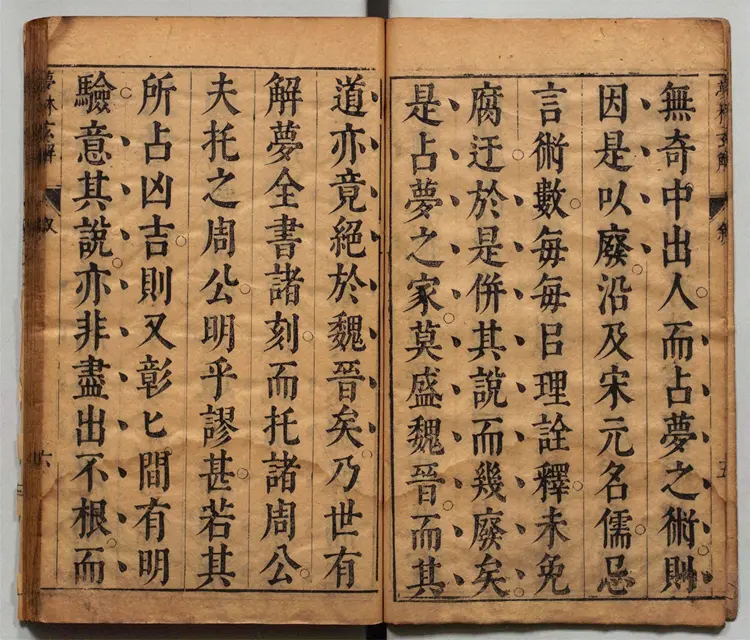 無奇中出人而占夢之術則
因是以廢沿及宋元名儒忌
言術數每每㠯理詮釋未免
腐迂於是併其說而幾廢矣
是占夢之家莫盛魏晉而其
道亦竟絕於魏晉矣乃世有
解夢全書諸刻而托諸周公
夫托之周公明乎謬甚若其
所占凶吉則又彰匕間有明
驗意其說亦非盡出不根而
夢林玄解
六
五